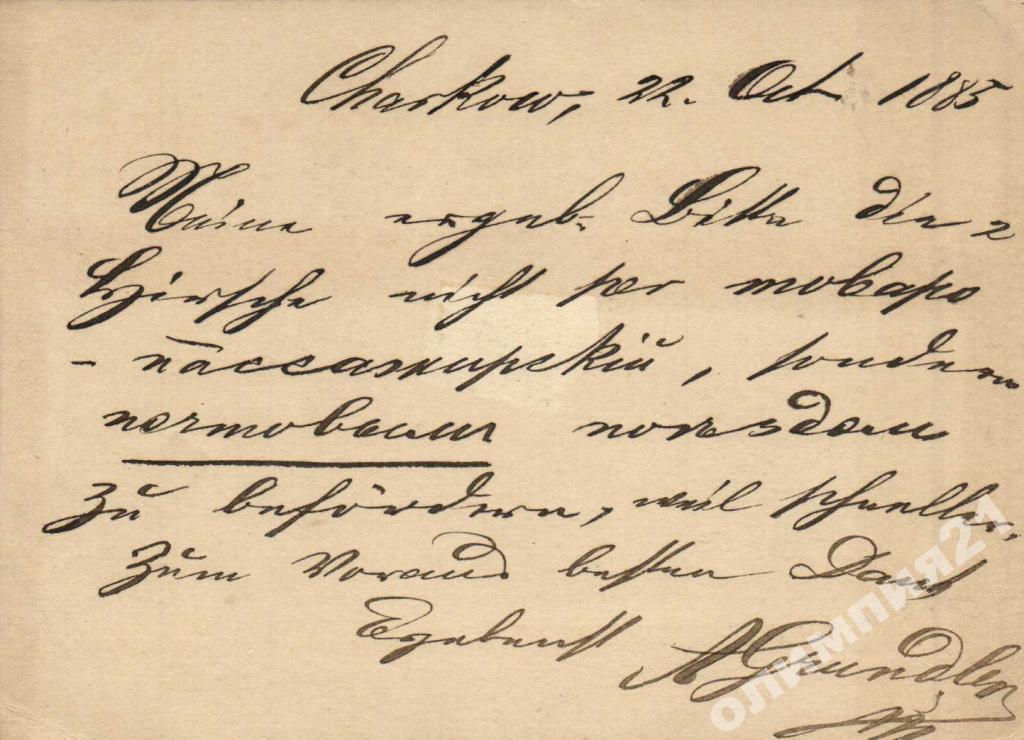 Charkow, 22. Oct. 1885
Meine ergeb. Bitte die 2
Hirsche nicht per товаро
- пассажирский, sondern
почтовымъ поѣздомъ
zu befördern, weil schneller.
Zum Voraus besten Dank
Ergebenst
A Grundler
олимпия21